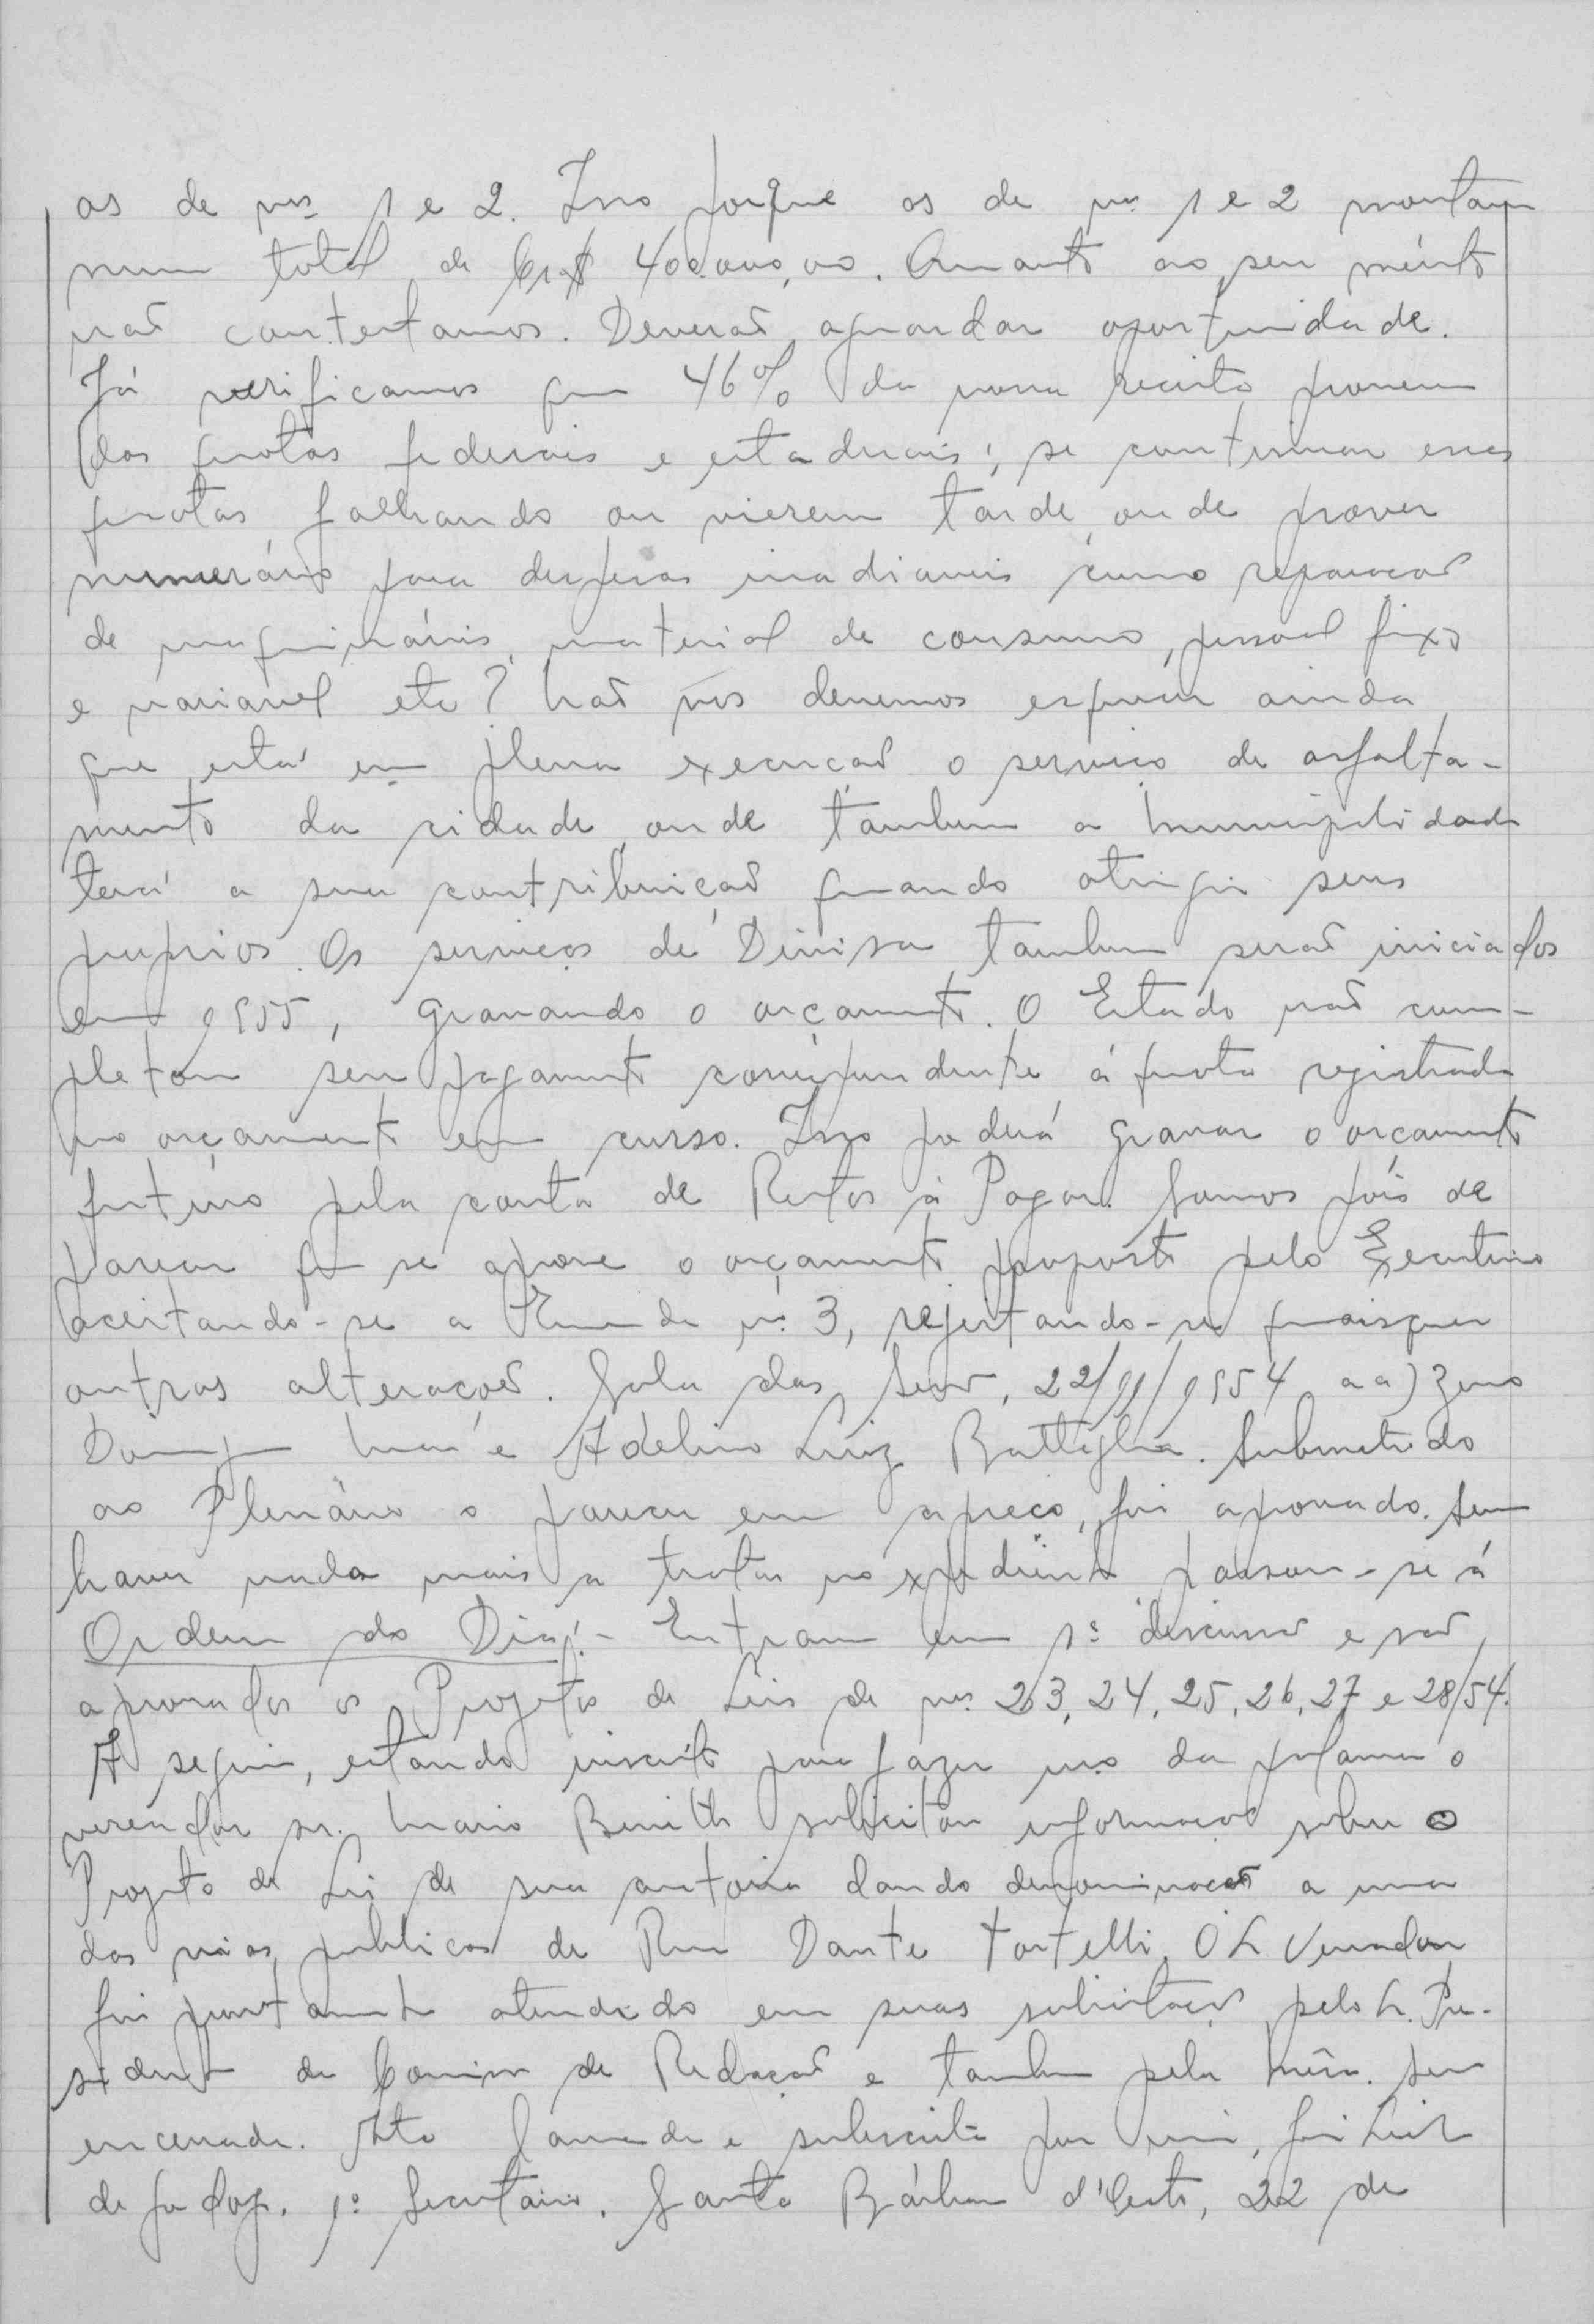 as de nos 1 e 2. Isso porque os de nos 1 e 2 montam
num total de Cr$ 400.000,00. Quanto ao seu mérito
não contestamos. Deverão aguardar oportunidade.
Já verificamos que 46% da nossa receita provem
das quotas federais e estaduais; se continuar essas
quotas falhando ou vierem tarde, onde prover
numerário para despesas inadiaveis como reparação
de maquinários, material de consumo, pessoal fixo
e variavel etc? Não nos devemos esquecer ainda
que está em plena execução o serviço de asfalta-
mento da cidade, onde tambem a Municipalidade
terá a sua contribuição quando atingir seus
proprios. Os serviços de Divisa tambem serão iniciados
em 1955, gravando o orçamento. O Estado não com-
pletou seu pagamento correspondente á quota registrada
no orçamento em curso. Isso poderá gravar o orçamento
futuro pela conta de Restos á Pagar. Somos pois de
parecer que se aprove o orçamento proposto pelo Executivo
aceitando-se a Emenda nº 3, rejeitando-se quaisquer
outras alterações. Sala das Sessões, 22/11/1954 aa) Zeno
Maia e Adelino Luiz Battiglia. Submetido
ao Plenário o parecer em apreço, foi aprovado. Sem
haver nada mais a tratar no expediente passou-se á
Ordem do Dia:- Entram em 1ª discussão e são
aprovados os Projetos de Leis de nos 23, 24, 25, 26, 27 e 28/54.
A seguir, estando inscrito para fazer uso da palavra o
vereador sr. Mario solicitou informações sobre o
Projeto de Lei de sua autoria dando denominação a uma
das vias publicas de Rua Dante Tortelli. O S. Vereador
foi prontamente atendido em suas solicitações pelo S. Pre-
sidente da Comissão de Redação e tambem pela Mesa.
encerrada. Ata lavrada e subscrita por mim,
de Godoy. 1º Secretario. Santa Bárbara d'Oeste, 22 de